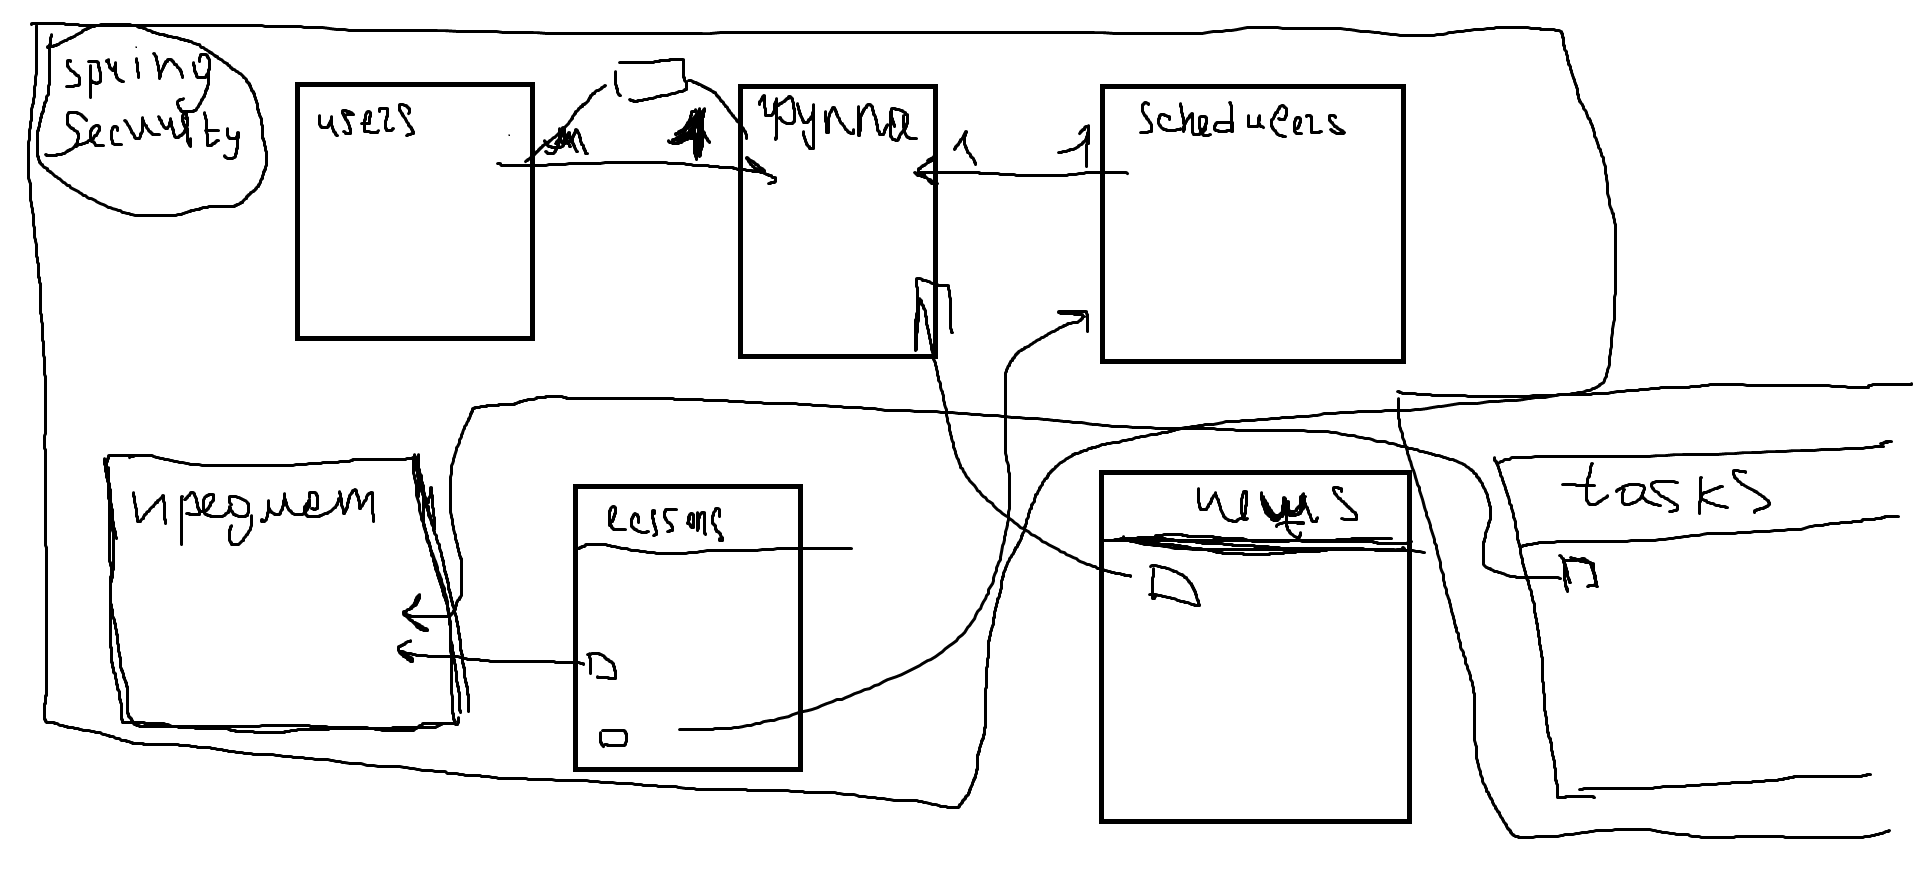 spring
Security
users
группа
1
1
1
schedulers
предмет
lessons
news
tasks